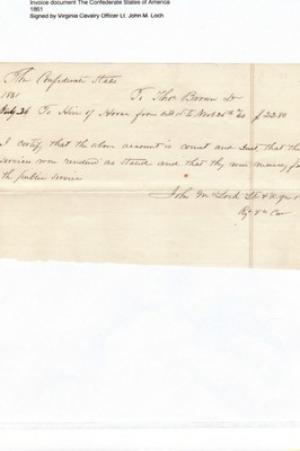 Invoice document The Confederate States of America
1861
Signed by Virginia Cavalry Officer Lt. John M. Loch
The Confederate States
1861 To Thos Brown Dr
To Hire of Horse from to 25th $ 22.80
I certify, that the above account is correct and Just, that the
services were rendered as stated and that they were necessary for
the public service
John M Lock Lt & A